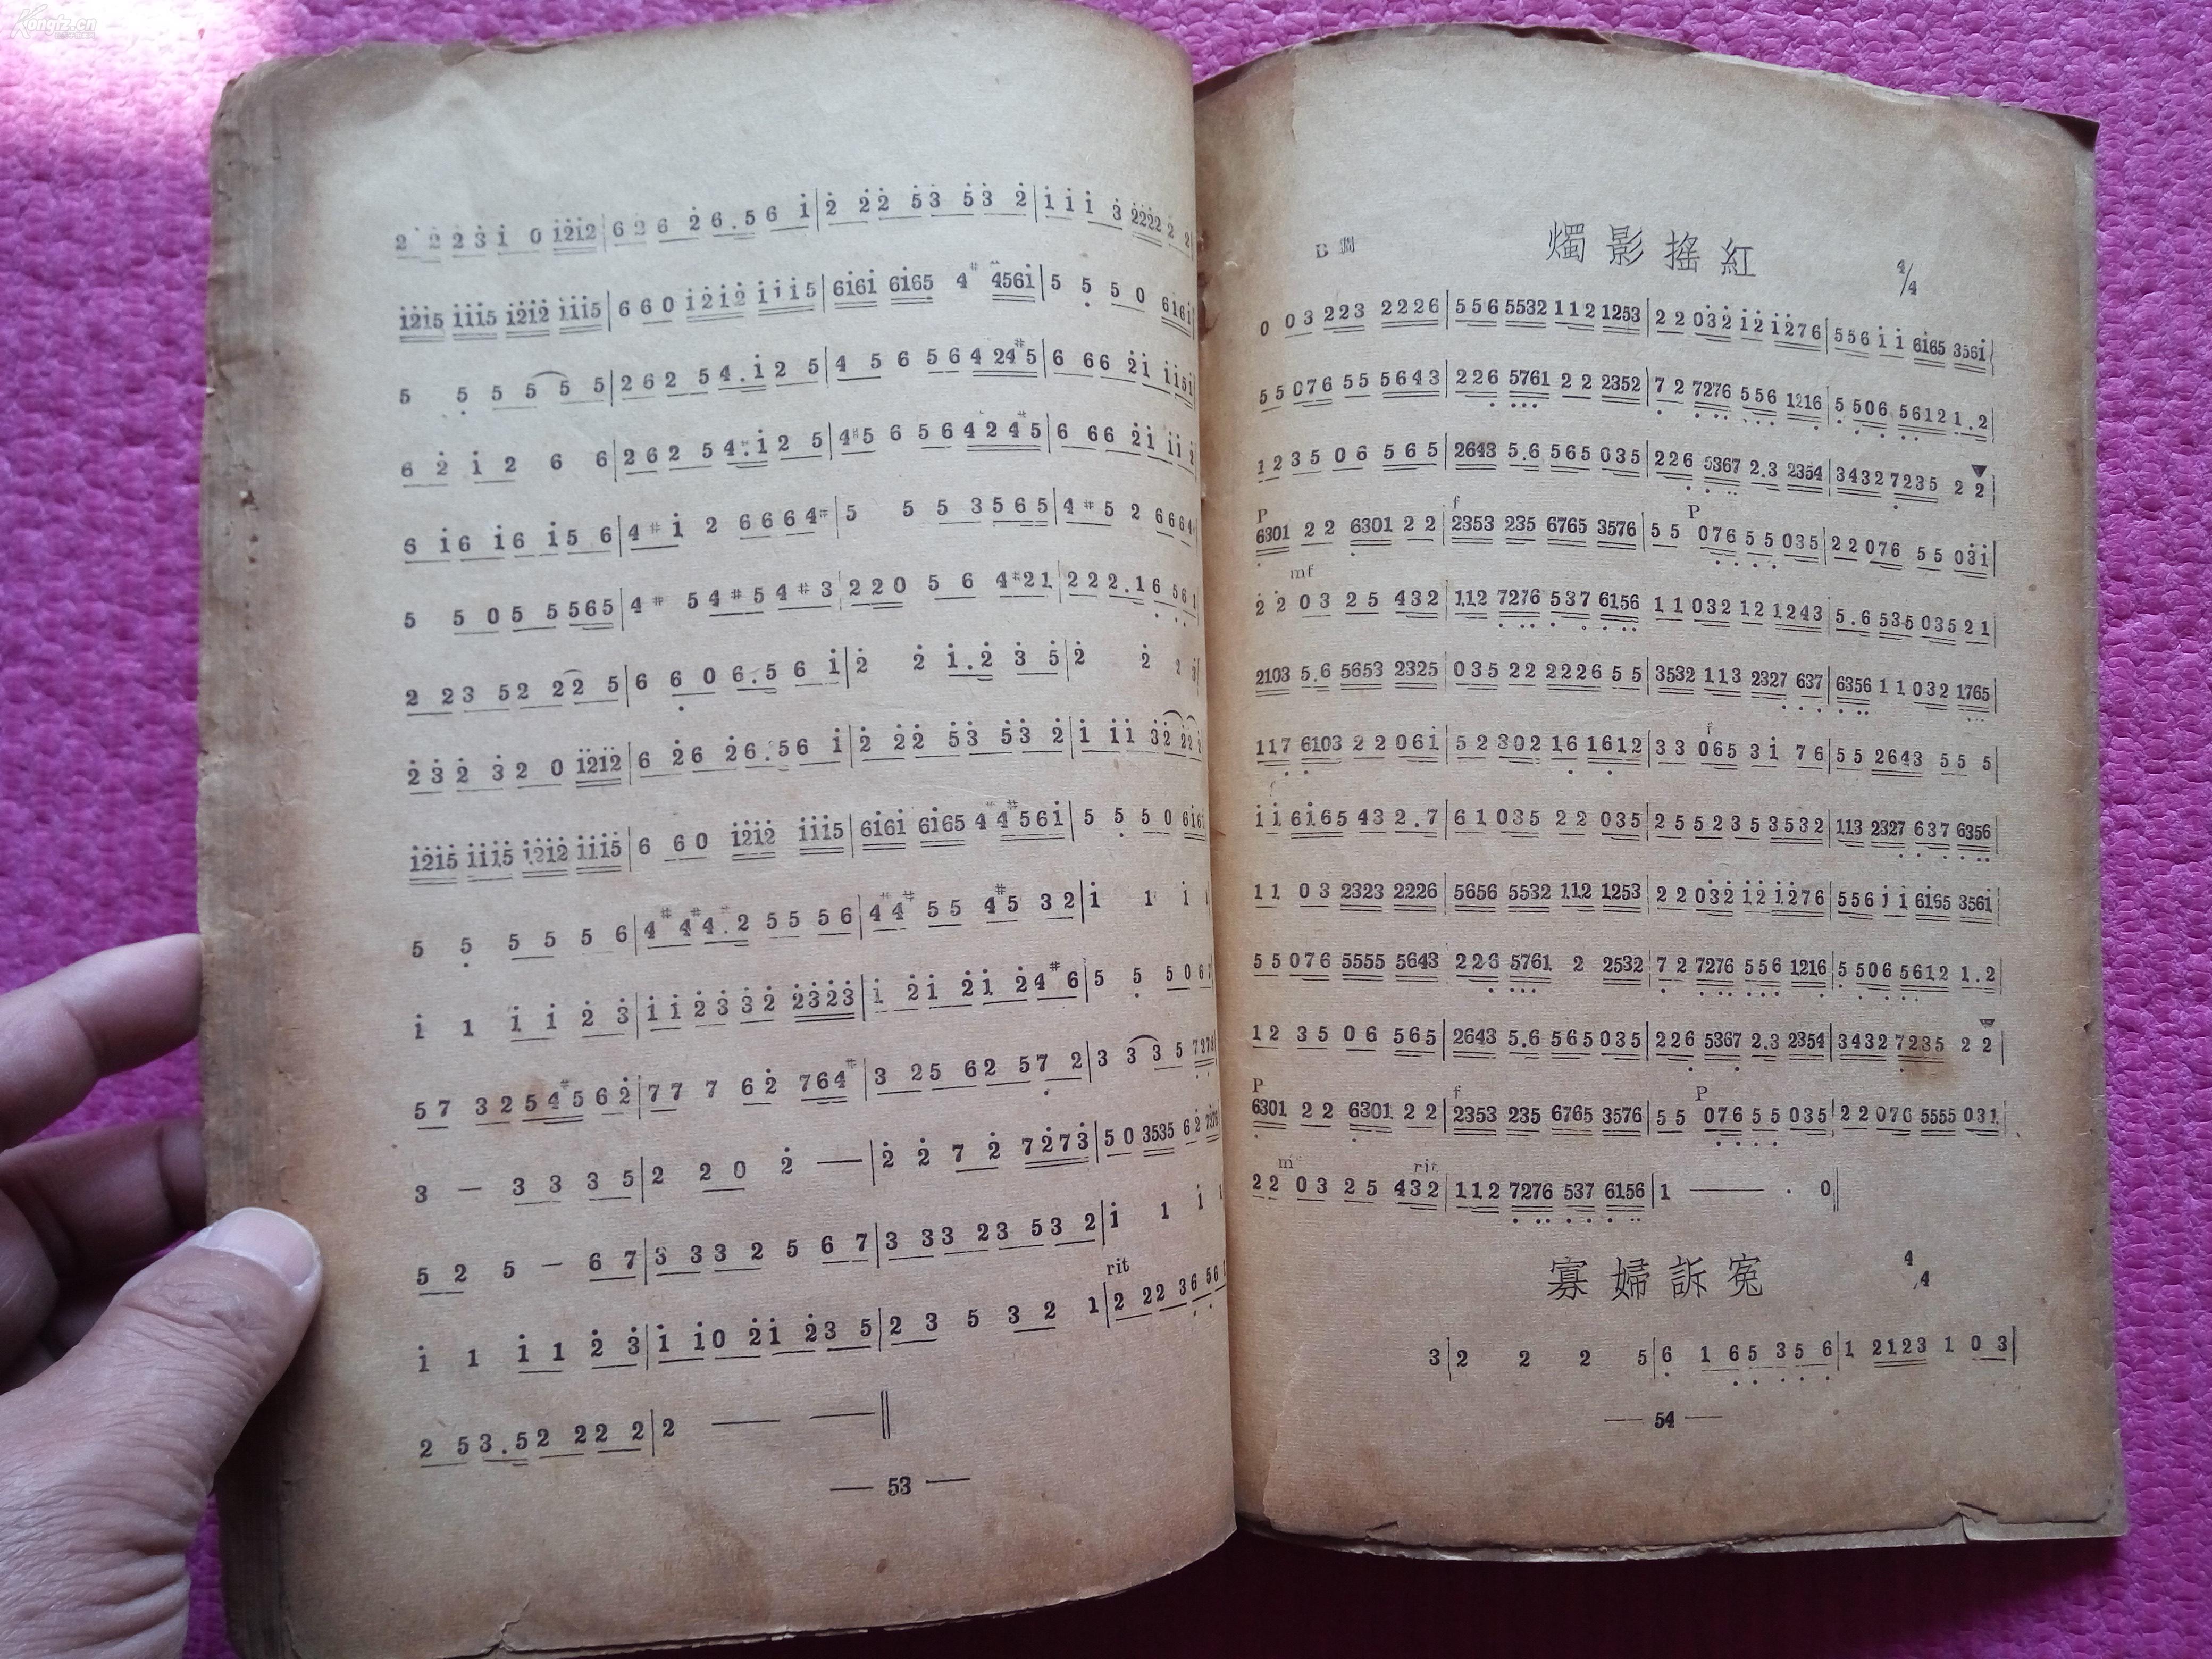 Kongfz.cn
2 2 2 3 i 0 i2i2 | 6 2 6 2 6 . 5 6 i | 2 2 2 5 3 5 3 2 | i i i 3 2222 2 2
i2i5 iii5 i2i2 iii5 | 6 6 0 i2i2 iii5 | 6i6i 6i65 4# 456i | 5 5 5 0 616i
5 5 5 5 5 5 | 2 6 2 5 4 . i 2 5 | 4 5 6 5 6 4 2 4# 5 | 6 6 6 2 i i i 5 i
6 2 i 2 6 6 | 2 6 2 5 4 . i 2 5 | 4# 5 6 5 6 4 2 4# 5 | 6 6 6 2 i i i 2
6 i 6 i 6 i 5 6 | 4# i 2 6 6 6 4# | 5 5 5 3 5 6 5 | 4# 5 2 6 6 6 4
5 5 0 5 5 5 6 5 | 4# 5 4# 5 4# 3 | 2 2 0 5 6 4# 2 1 | 2 2 2 . 1 6 5 6 1
2 2 3 5 2 2 2 5 | 6 6 0 6 . 5 6 i | 2 2 i . 2 3 5 | 2 2 2 3
2 3 2 3 2 0 i2i2 | 6 2 6 2 6 . 5 6 i | 2 2 2 5 3 5 3 2 | i i i 3 2 2 2
i2i5 iii5 i2i2 iii5 | 6 6 0 i2i2 iii5 | 6i6i 6i65 4# 4# 5 6 i | 5 5 5 0 6i6i
5 5 5 5 5 6 | 4# 4# 4# . 2 5 5 5 6 | 4# 4# 5 5 4# 5 3 2 | i 1 i 1
i 1 i i 2 3 | i i 2 3 3 2 2323 | i 2 i 2 i 2 4# 6 | 5 5 5 0 6 7
5 7 3 2 5 4# 5 6 2 | 7 7 7 6 2 7 6 4# | 3 2 5 6 2 5 7 2 | 3 3 3 5 7 2 7
3 — 3 3 3 5 | 2 2 0 2 — | 2 2 7 2 7273 | 5 0 3535 6 2 7
5 2 5 — 6 7 | 3 3 3 2 5 6 7 | 3 3 3 2 3 5 3 2 | i 1 i 1
rit
i 1 i 1 2 3 | i i 0 2 i 2 3 5 | 2 3 5 3 2 1 | 2 2 2 3 6 5 6 1
2 5 3 . 5 2 2 2 2 | 2 — — ‖
— 53 —
B 調 燭影搖紅 4/4
0 0 3 2 2 3 2 2 2 6 | 5 5 6 5532 1 1 2 1253 | 2 2 0 3 2 i 2 i 2 7 6 | 5 5 6 i i 6i65 356i |
5 5 0 7 6 5 5 5 6 4 3 | 2 2 6 5761 2 2 2352 | 7 2 7276 5 5 6 1216 | 5 5 0 6 5 6 1 2 1 . 2 |
1 2 3 5 0 6 5 6 5 | 2643 5 . 6 5 6 5 0 3 5 | 2 2 6 5367 2 . 3 2354 | 3 4 3 2 7 2 3 5 2 2 |
P f P
6301 2 2 6301 2 2 | 2353 235 6765 3576 | 5 5 0 7 6 5 5 0 3 5 | 2 2 0 7 6 5 5 0 3 i |
mf
2 2 0 3 2 5 4 3 2 | 1 1 2 7276 5 3 7 6156 1 1 0 3 2 1 2 1 2 4 3 | 5 . 6 5 3 5 0 3 5 2 1 |
2103 5 . 6 5653 2325 | 0 3 5 2 2 2 2 2 6 5 5 | 3532 1 1 3 2327 637 | 6356 1 1 0 3 2 1765 |
f
1 1 7 6103 2 2 0 6 i | 5 2 3 0 2 1 6 1 6 1 2 | 3 3 0 6 5 3 i 7 6 | 5 5 2 6 4 3 5 5 5 |
i i 6 i 6 5 4 3 2 . 7 | 6 1 0 3 5 2 2 0 3 5 | 2 5 5 2 3 5 3 5 3 2 | 113 2327 6 3 7 6356
1 1 0 3 2323 2226 | 5656 5532 112 1253 | 2 2 0 3 2 i 2 i 2 7 6 | 5 5 6 i i 6i65 356i |
5 5 0 7 6 5555 5643 2 2 6 5761 2 2532 | 7 2 7276 5 5 6 1216 | 5 5 0 6 5 6 1 2 1 . 2 |
1 2 3 5 0 6 5 6 5 | 2643 5 . 6 5 6 5 0 3 5 | 2 2 6 5367 2 . 3 2354 | 3 4 3 2 7 2 3 5 2 2 |
P f P
6301 2 2 6301 2 2 | 2353 235 6765 3576 | 5 5 0 7 6 5 5 0 3 5 | 2 2 0 7 6 5555 0 3 1 |
rit.
2 2 0 3 2 5 4 3 2 | 1 1 2 7276 537 6156 | 1 — · 0 ‖
寡婦訴冤 4/4
3 | 2 2 2 5 | 6 1 6 5 3 5 6 | 1 2 1 2 3 1 0 3 |
— 54 —